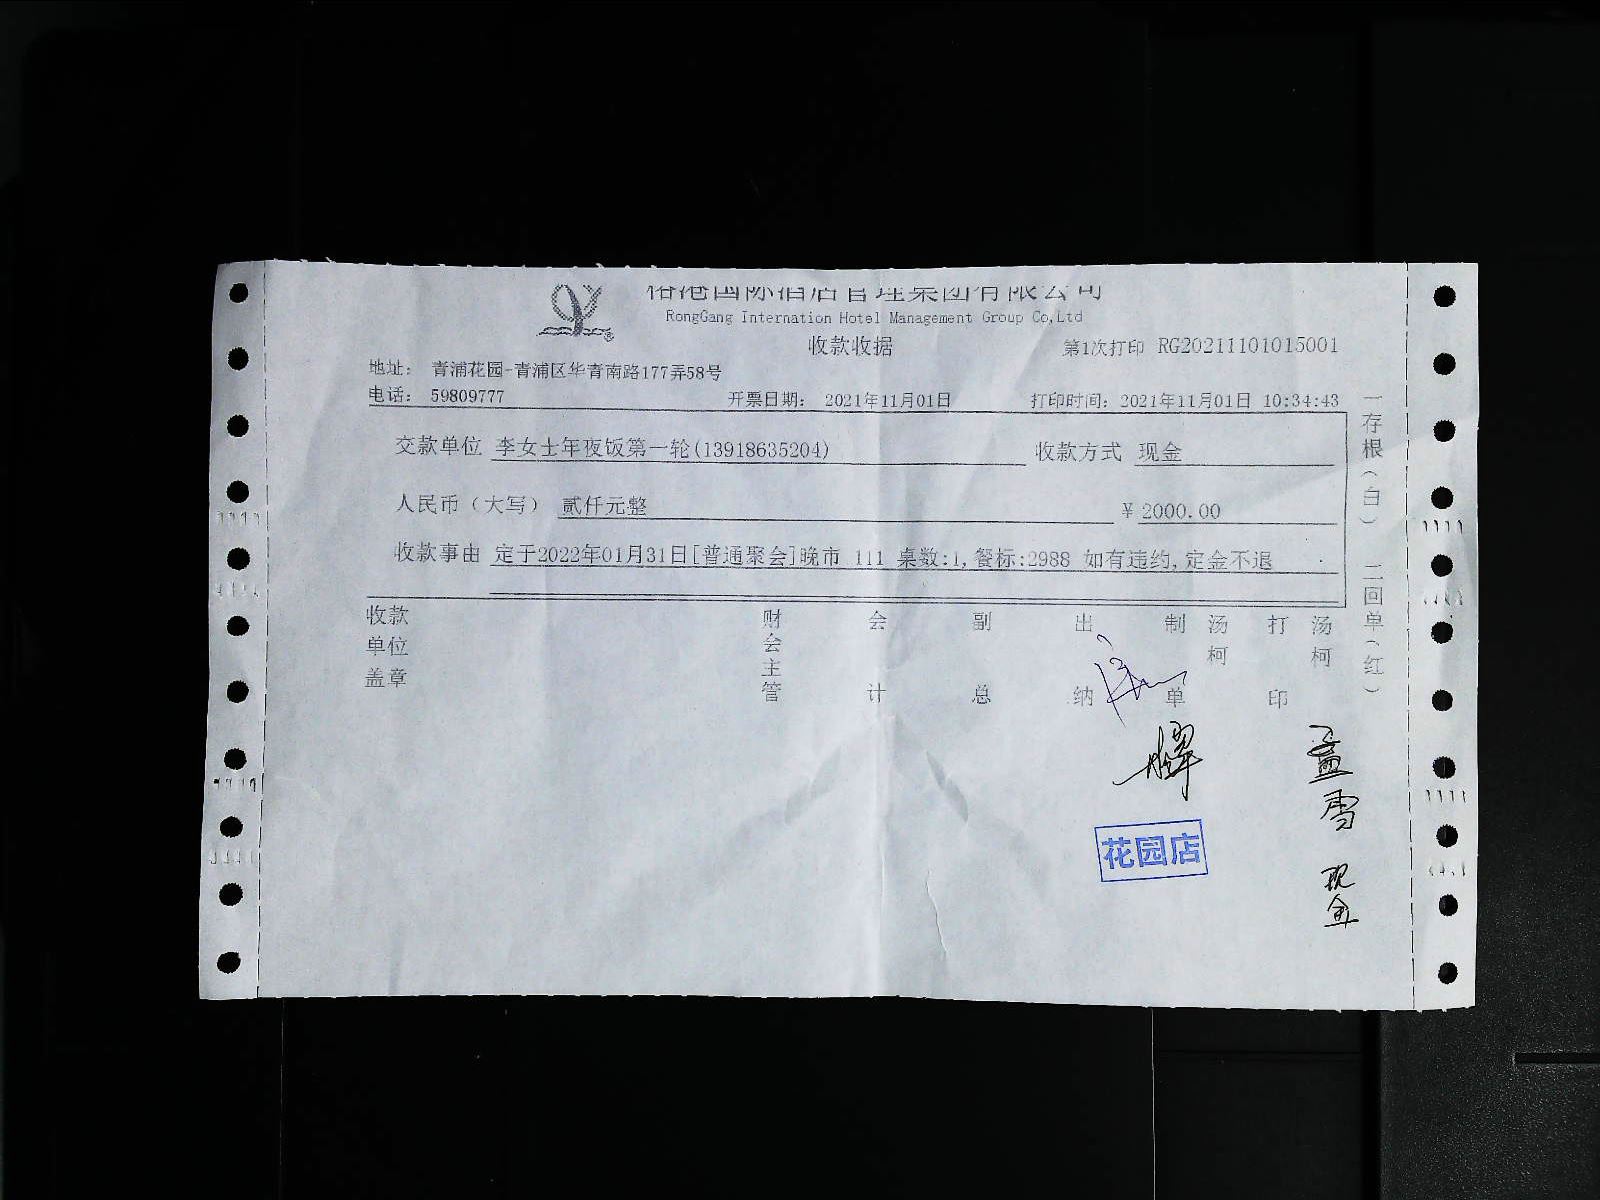 榕港国际酒店管理集团有限公司
RongGang Internation Hotel Management Group Co,Ltd
收款收据
第1次打印 RG20211101015001
地址： 青浦花园-青浦区华青南路177弄58号
电话： 59809777 开票日期： 2021年11月01日 打印时间：2021年11月01日 10:34:43
交款单位 李女士年夜饭第一轮(13918635204) 收款方式 现金
人民币（大写） 贰仟元整 ￥2000.00
收款事由 定于2022年01月31日[普通聚会]晚市 111 桌数:1,餐标:2988 如有违约,定金不退
收款单位盖章 财会主管 会计 副总 出纳 制单 汤柯 打印 汤柯
一存根（白） 二回单（红）
花园店
孟雪
现金